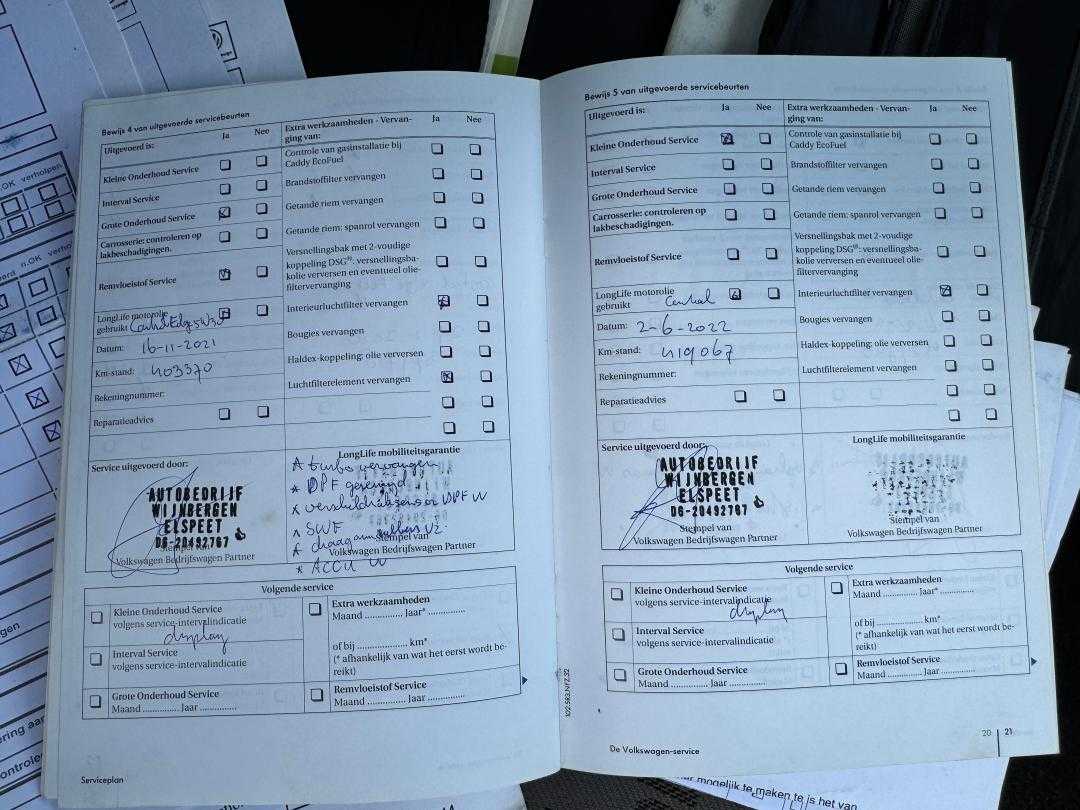 Bewijs 4 van uitgevoerde servicebeurten
Uitgevoerd is:
Ja
Nee
Kleine Onderhoud Service
Interval Service
Grote Onderhoud Service
Carrosserie: controleren op
lakbeschadigingen.
Remvloeistof Service
LongLife motorolie
gebruikt
Datum: 16-11-2021
Km-stand: 403370
Rekeningnummer:
Reparatieadvies
Extra werkzaamheden - Vervan-
ging van:
Ja
Nee
Controle van gasinstallatie bij
Caddy EcoFuel
Brandstoffilter vervangen
Getande riem vervangen
Getande riem: spanrol vervangen
Versnellingsbak met 2-voudige
koppeling DSG®: versnellingsba-
kolie verversen en eventueel olie-
filtervervanging
Interieurluchtfilter vervangen
Bougies vervangen
Haldex-koppeling: olie verversen
Luchtfilterelement vervangen
Service uitgevoerd door:
AUTOBEDRIJF
WIJNBERGEN
ELSPEET
06-20492767
Stempel van
Volkswagen Bedrijfswagen Partner
LongLife mobiliteitsgarantie
* turbo vervangen
* DPF gereinigd
* verschildruksensor DPF W
* SWF
* draagarmrubbers VZ
* ACCU W
Stempel van
Volkswagen Bedrijfswagen Partner
Volgende service
Kleine Onderhoud Service
volgens service-intervalindicatie
display
Interval Service
volgens service-intervalindicatie
Grote Onderhoud Service
Maand .............. Jaar ..............
Extra werkzaamheden
Maand .............. Jaar* ..............
of bij .............. km*
(* afhankelijk van wat het eerst wordt be-
reikt)
Remvloeistof Service
Maand .............. Jaar ..............
Serviceplan
Bewijs 5 van uitgevoerde servicebeurten
Uitgevoerd is:
Ja
Nee
Kleine Onderhoud Service
Interval Service
Grote Onderhoud Service
Carrosserie: controleren op
lakbeschadigingen.
Remvloeistof Service
LongLife motorolie
gebruikt
Datum: 2-6-2022
Km-stand: 419067
Rekeningnummer:
Reparatieadvies
Extra werkzaamheden - Vervan-
ging van:
Ja
Nee
Controle van gasinstallatie bij
Caddy EcoFuel
Brandstoffilter vervangen
Getande riem vervangen
Getande riem: spanrol vervangen
Versnellingsbak met 2-voudige
koppeling DSG®: versnellingsba-
kolie verversen en eventueel olie-
filtervervanging
Interieurluchtfilter vervangen
Bougies vervangen
Haldex-koppeling: olie verversen
Luchtfilterelement vervangen
Service uitgevoerd door:
AUTOBEDRIJF
WIJNBERGEN
ELSPEET
06-20492767
Stempel van
Volkswagen Bedrijfswagen Partner
LongLife mobiliteitsgarantie
Stempel van
Volkswagen Bedrijfswagen Partner
Volgende service
Kleine Onderhoud Service
volgens service-intervalindicatie
display
Interval Service
volgens service-intervalindicatie
Grote Onderhoud Service
Maand .............. Jaar ..............
Extra werkzaamheden
Maand .............. Jaar* ..............
of bij .............. km*
(* afhankelijk van wat het eerst wordt be-
reikt)
Remvloeistof Service
Maand .............. Jaar ..............
De Volkswagen-service
20 21
mogelijk te maken te is het van